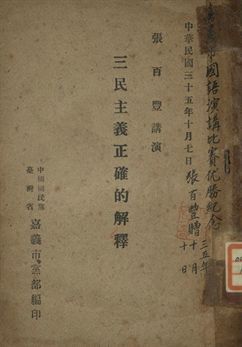 市國語演講比賽优勝紀念
三五年十月十日
張百豐贈
中華民國三十五年十月七日
張百豐講演
三民主義正確的解釋
中國國民黨
臺灣省
嘉義市黨部編印